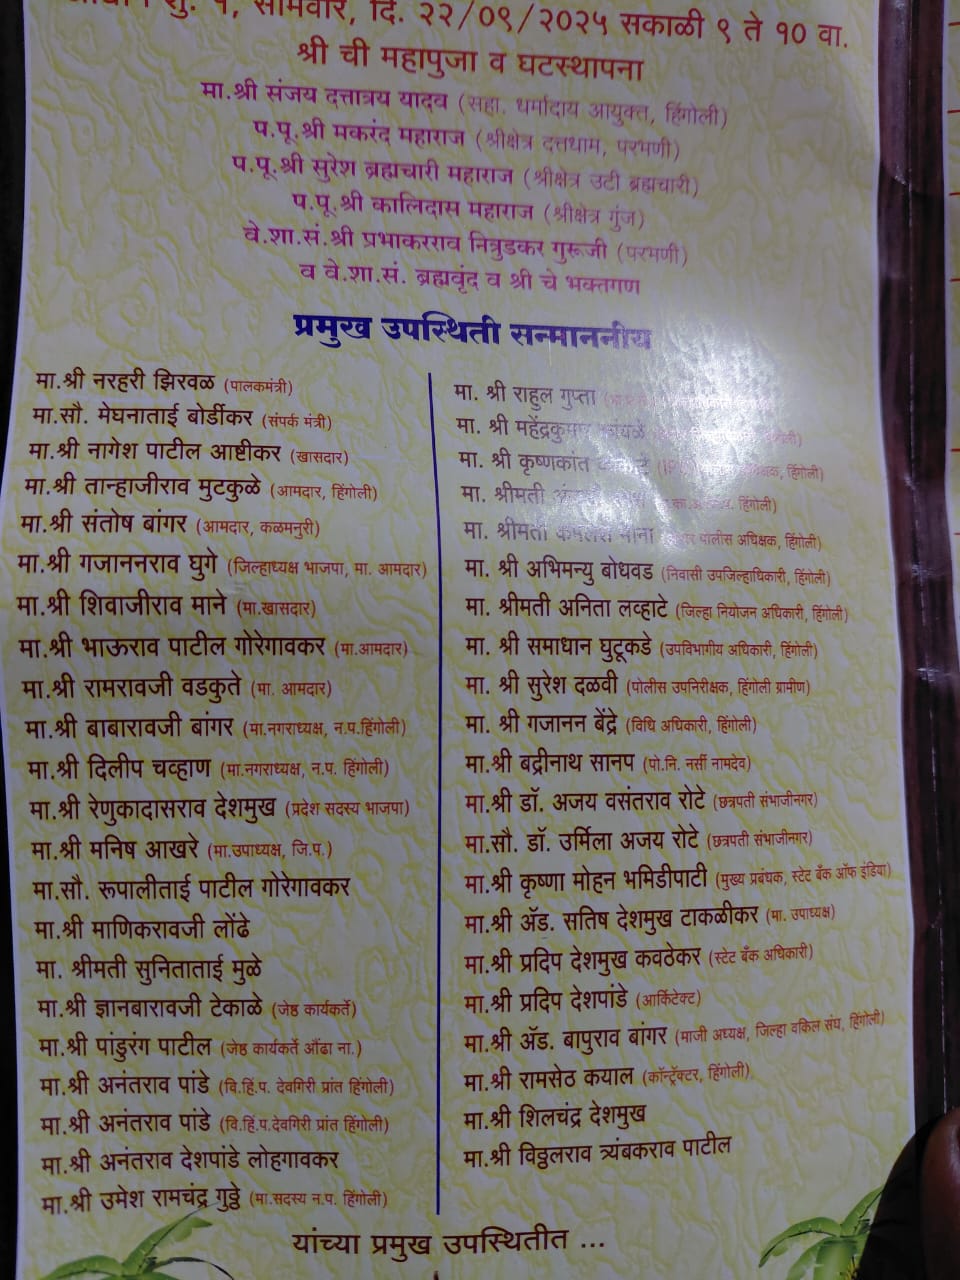 शु. १, सोमवार, दि. २२/०९/२०२५ सकाळी ९ ते १० वा.
श्री ची महापुजा व घटस्थापना
मा.श्री संजय दत्तात्रय यादव (सहा. धर्मादाय आयुक्त, हिंगोली)
प.पू.श्री मकरंद महाराज (श्रीक्षेत्र दत्तधाम, परभणी)
प.पू.श्री सुरेश ब्रह्मचारी महाराज (श्रीक्षेत्र उटी ब्रह्मचारी)
प.पू.श्री कालिदास महाराज (श्रीक्षेत्र गुंज)
वे.शा.सं.श्री प्रभाकरराव नित्रुडकर गुरूजी (परभणी)
व वे.शा.सं. ब्रह्मवृंद व श्री चे भक्तगण
प्रमुख उपस्थिती सन्माननीय
मा.श्री नरहरी झिरवळ (पालकमंत्री)
मा.सौ. मेघनाताई बोर्डीकर (संपर्क मंत्री)
मा.श्री नागेश पाटील आष्टीकर (खासदार)
मा.श्री तान्हाजीराव मुटकुळे (आमदार, हिंगोली)
मा.श्री संतोष बांगर (आमदार, कळमनुरी)
मा.श्री गजाननराव घुगे (जिल्हाध्यक्ष भाजपा, मा. आमदार)
मा.श्री शिवाजीराव माने (मा.खासदार)
मा.श्री भाऊराव पाटील गोरेगावकर (मा.आमदार)
मा.श्री रामरावजी वडकुते (मा. आमदार)
मा.श्री बाबारावजी बांगर (मा.नगराध्यक्ष, न.प.हिंगोली)
मा.श्री दिलीप चव्हाण (मा.नगराध्यक्ष, न.प. हिंगोली)
मा.श्री रेणुकादासराव देशमुख (प्रदेश सदस्य भाजपा)
मा.श्री मनिष आखरे (मा.उपाध्यक्ष, जि.प.)
मा.सौ. रूपालीताई पाटील गोरेगावकर
मा.श्री माणिकरावजी लोंढे
मा. श्रीमती सुनिताताई मुळे
मा.श्री ज्ञानबारावजी टेकाळे (जेष्ठ कार्यकर्ते)
मा.श्री पांडुरंग पाटील (जेष्ठ कार्यकर्ते औंढा ना.)
मा.श्री अनंतराव पांडे (वि.हिं.प. देवगिरी प्रांत हिंगोली)
मा.श्री अनंतराव पांडे (वि.हिं.प.देवगिरी प्रांत हिंगोली)
मा.श्री अनंतराव देशपांडे लोहगावकर
मा.श्री उमेश रामचंद्र गुठ्ठे (मा.सदस्य न.प. हिंगोली)
मा. श्री राहुल गुप्ता
मा. श्री
मा. श्री कृष्णकांत हिंगोली)
मा. श्रीमती हिंगोली)
मा. श्रीमती पोलीस अधिक्षक, हिंगोली)
मा. श्री अभिमन्यु बोधवड (निवासी उपजिल्हाधिकारी, हिंगोली)
मा. श्रीमती अनिता लव्हाटे (जिल्हा नियोजन अधिकारी, हिंगोली)
मा. श्री समाधान घुटूकडे (उपविभागीय अधिकारी, हिंगोली)
मा. श्री सुरेश दळवी (पोलीस उपनिरीक्षक, हिंगोली ग्रामीण)
मा. श्री गजानन बेंद्रे (विधि अधिकारी, हिंगोली)
मा.श्री बद्रीनाथ सानप (पो.नि. नर्सी नामदेव)
मा.श्री डॉ. अजय वसंतराव रोटे (छत्रपती संभाजीनगर)
मा.सौ. डॉ. उर्मिला अजय रोटे (छत्रपती संभाजीनगर)
मा.श्री कृष्णा मोहन भमिडीपाटी (मुख्य प्रबंधक, स्टेट बँक ऑफ इंडिया)
मा.श्री ॲड. सतिष देशमुख टाकळीकर (मा. उपाध्यक्ष)
मा.श्री प्रदिप देशमुख कवठेकर (स्टेट बँक अधिकारी)
मा.श्री प्रदिप देशपांडे (आर्किटेक्ट)
मा.श्री ॲड. बापुराव बांगर (माजी अध्यक्ष, जिल्हा वकिल संघ, हिंगोली)
मा.श्री रामसेठ कयाल (कॉन्ट्रॅक्टर, हिंगोली)
मा.श्री शिलचंद्र देशमुख
मा.श्री विठ्ठलराव त्र्यंबकराव पाटील
यांच्या प्रमुख उपस्थितीत ...